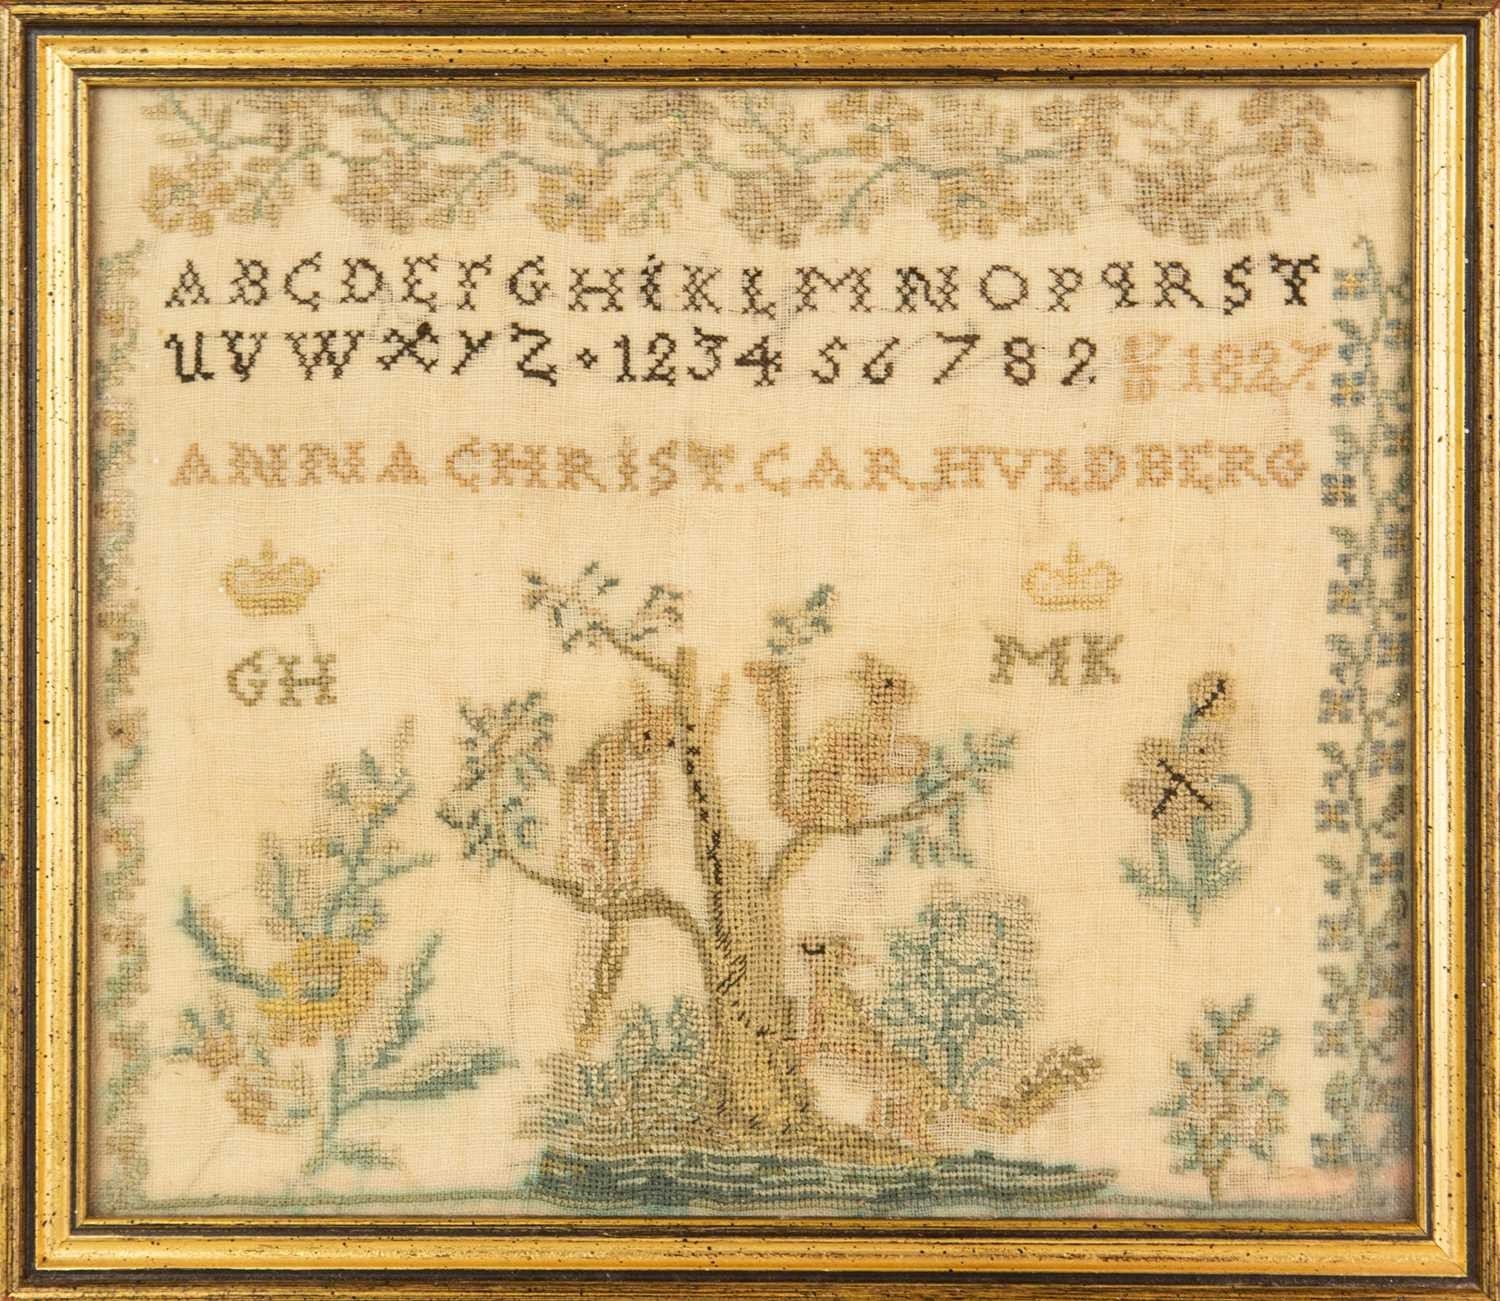 ABCDEFGHIKLMNOPQRST
UVWXYZ 1234 56 789 1827
ANNA CHRIST. CAR. HVLDBERG
GH MK